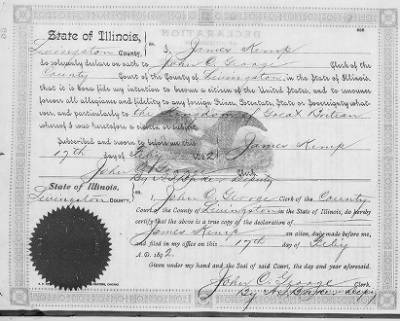 State of Illinois,
Livingston County, ss. I, James Kemp
do solemnly declare on oath to John C. George Clerk of the
County Court of the County of Livingston, in the State of Illinois,
that it is bona fide my intention to become a citizen of the United States, and to renounce
forever all allegiance and fidelity to any foreign Prince, Potentate, State or Sovereignty what-
ever, and particularly to the Kingdom of Great Britian
whereof I was heretofore a citizen or subject.
Subscribed and sworn to before me this
17th day of Feby 1892 James Kemp
John Clerk
By Deputy
State of Illinois,
Livingston County, I, John C. George Clerk of the County
Court of the County of Livingston in the State of Illinois, do hereby
certify that the above is a true copy of the declaration of
James Kemp an alien, duly made before me,
and filed in my office on this 17th day of Feby
A. D. 1892.
Given under my hand and the Seal of said Court, the day and year aforesaid.
John C. George Clerk.
By Depy